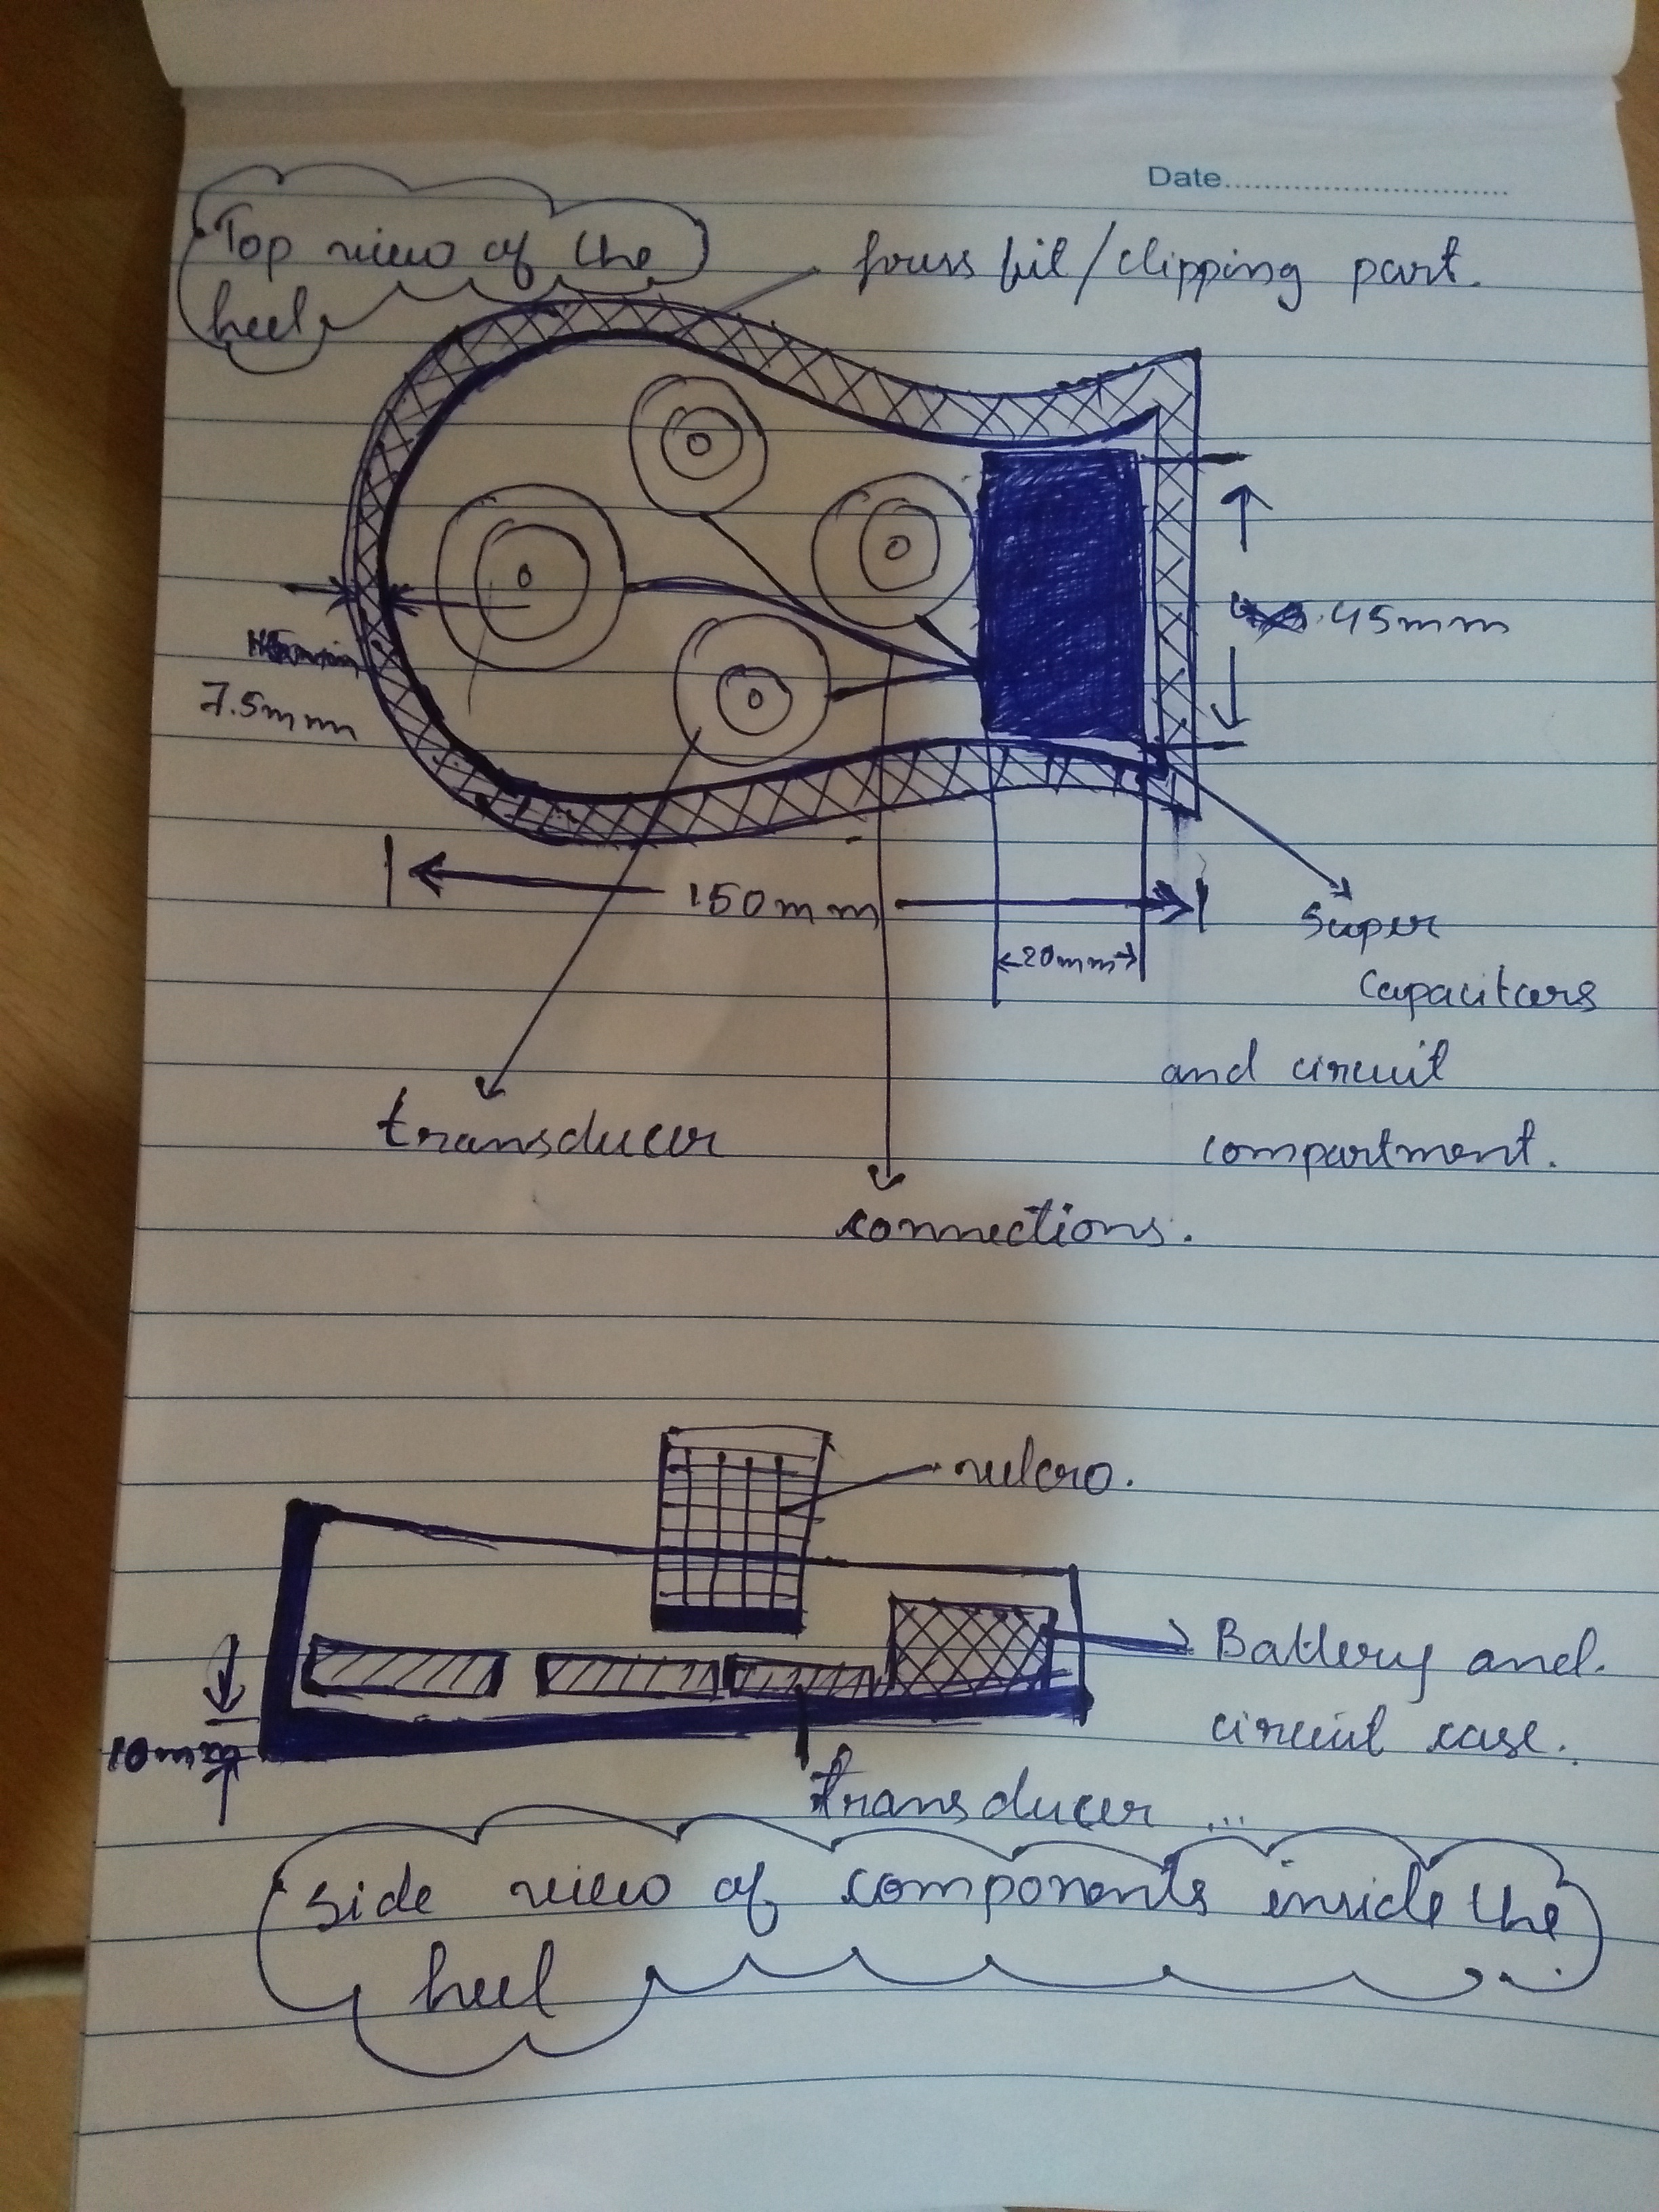 Date
Top view of the
heel
press fit/clipping part.
45mm
7.5mm
150mm
20mm
Super
Capacitors
and circuit
compartment.
transducer
connections.
velcro.
Battery and.
circuit case.
10mm
transducer ...
side view of components inside the
heel